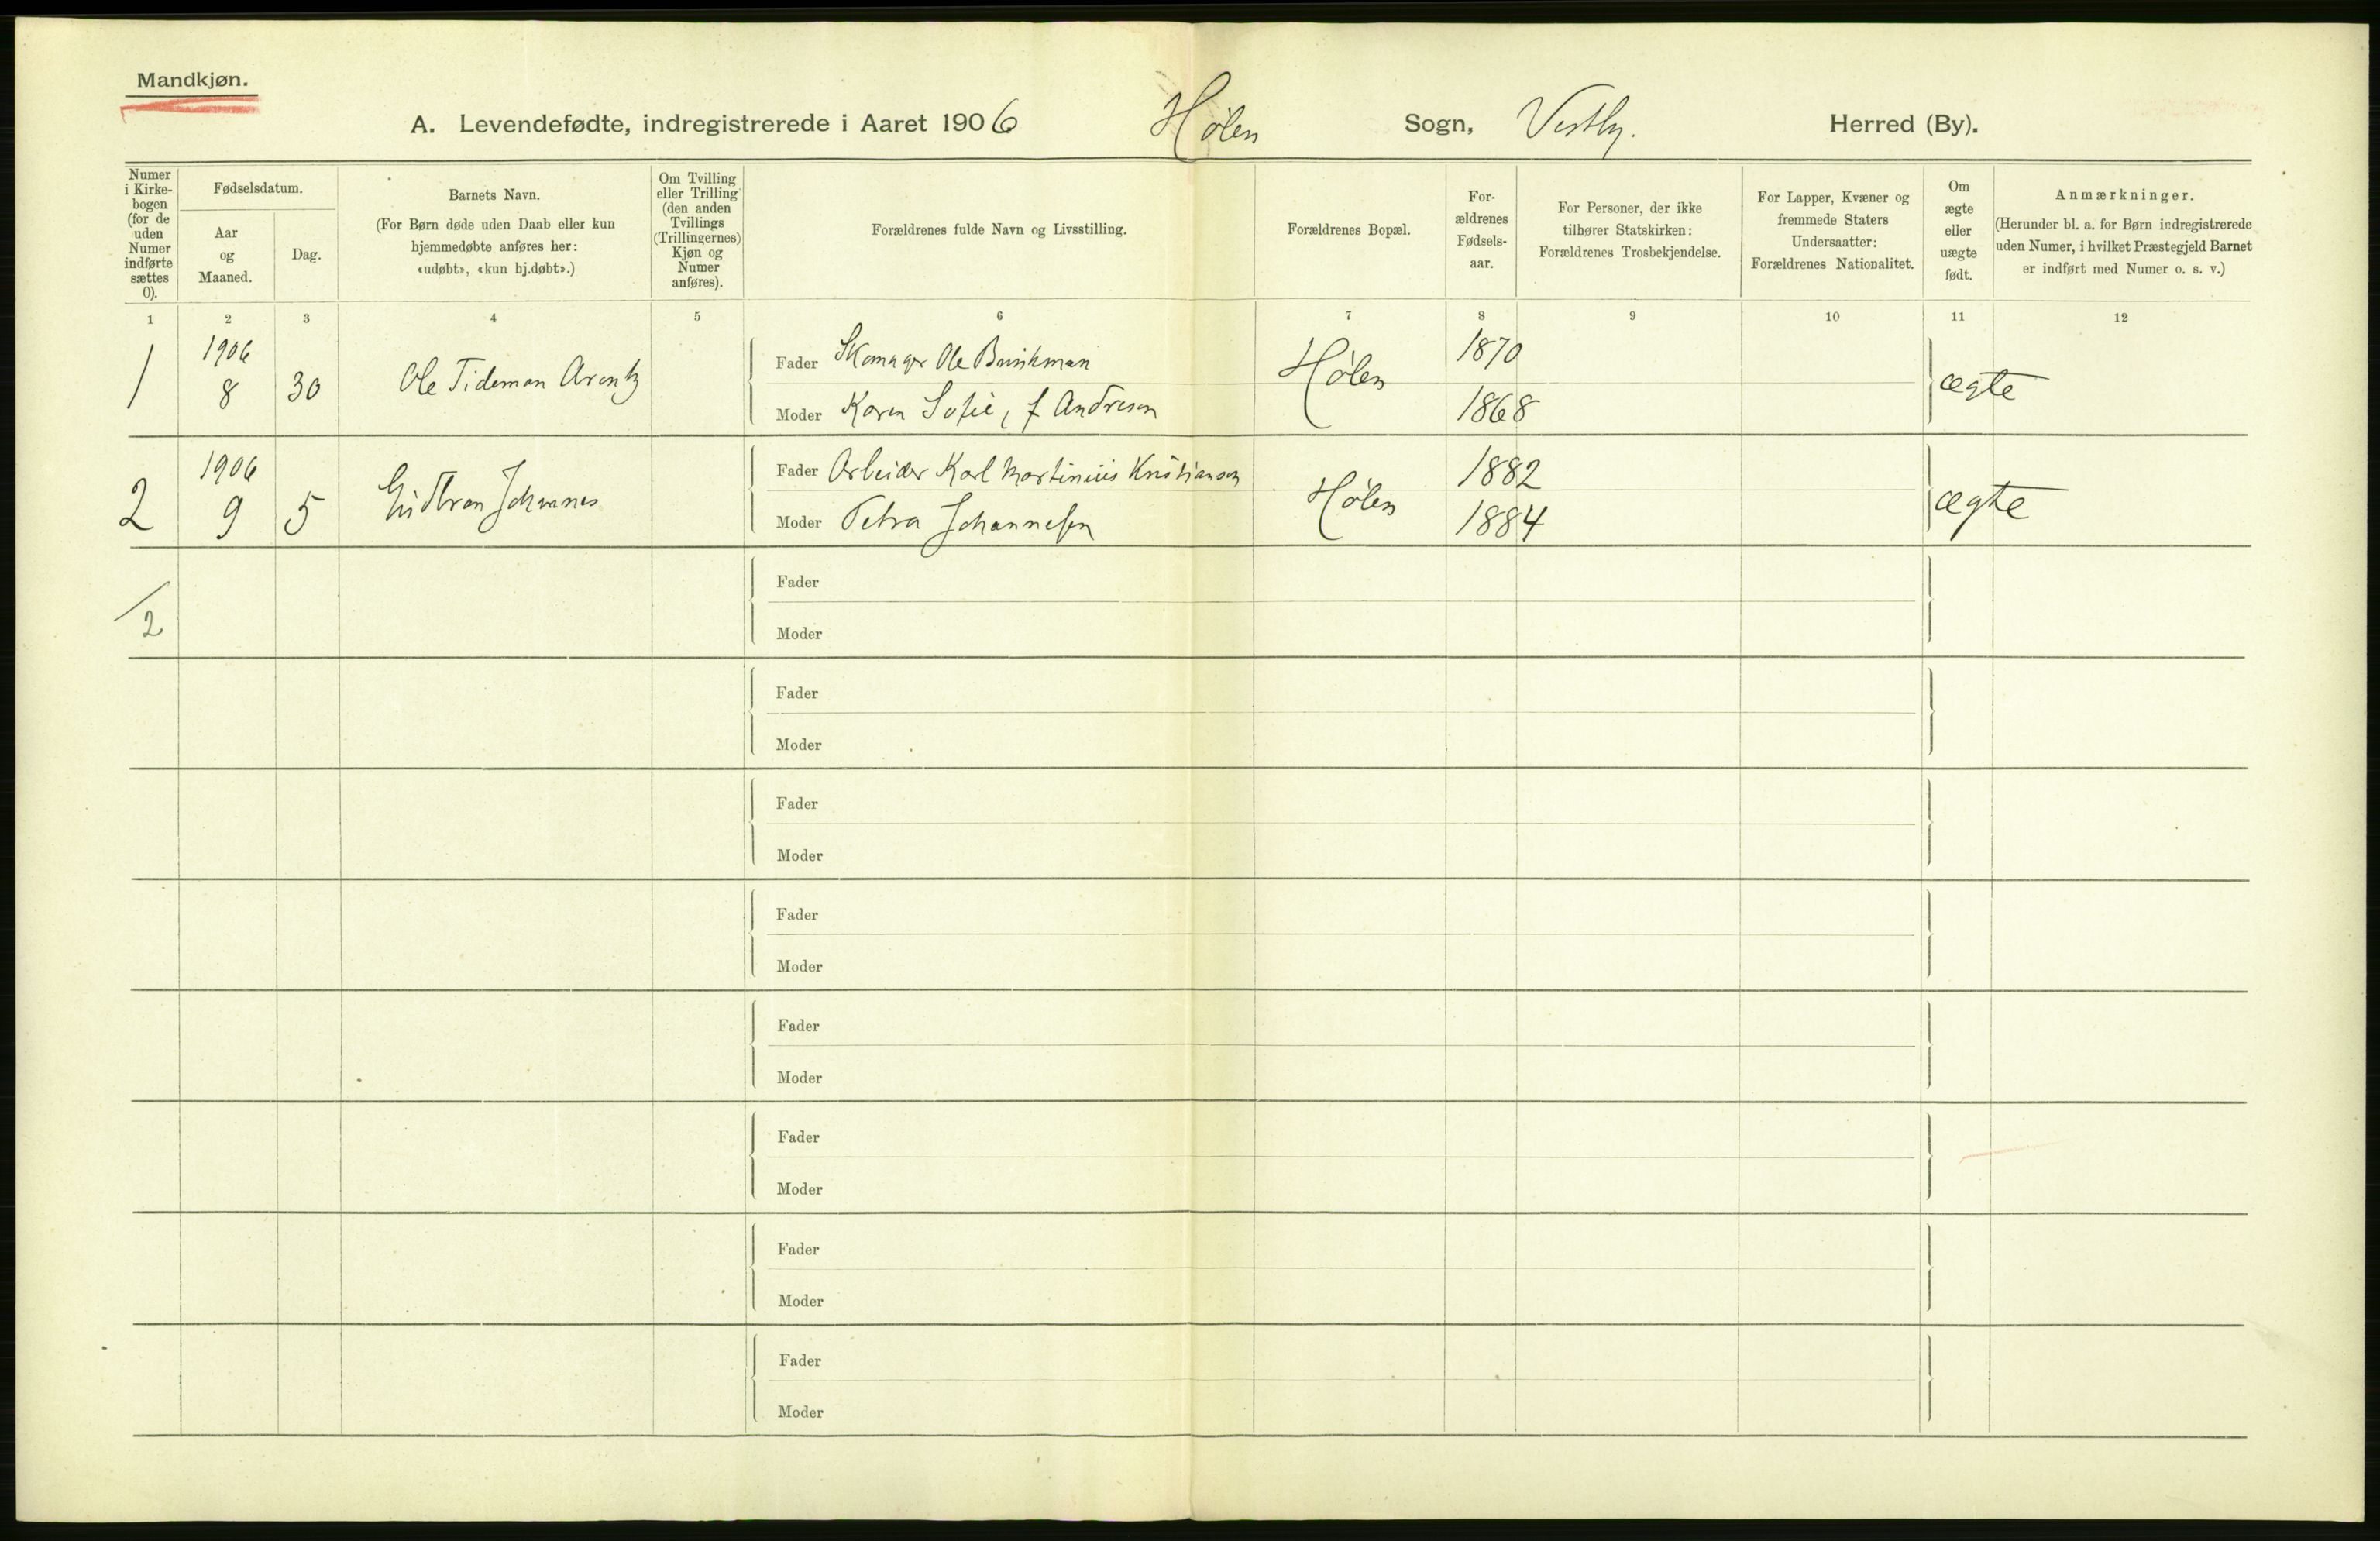 Mandkjøn.
A. Levendefødte, indregistrerede i Aaret 1906 Hølen Sogn, Vestby. Herred (By).
Numer i Kirke-bogen (for de uden Numer indførte sættes 0).
Fødselsdatum.
Aar og Maaned.
Dag.
Barnets Navn.
(For Børn døde uden Daab eller kun
hjemmedøbte anføres her:
«udøbt», «kun hj.døbt».)
Om Tvilling
eller Trilling
(den anden
Tvillings
(Trillingernes)
Kjøn og
Numer
anføres).
Forældrenes fulde Navn og Livsstilling.
Forældrenes Bopæl.
For-
ældrenes
Fødsels-
aar.
For Personer, der ikke
tilhører Statskirken:
Forældrenes Trosbekjendelse.
For Lapper, Kvæner og
fremmede Staters
Undersaatter:
Forældrenes Nationalitet.
Om
ægte
eller
uægte
født.
Anmærkninger.
(Herunder bl. a. for Børn indregistrerede
uden Numer, i hvilket Præstegjeld Barnet
er indført med Numer o. s. v.)
1 2 3 4 5 6 7 8 9 10 11 12
1 1906 8 30 Ole Tideman Arentz
Fader Skomager Ole Brinkman Hølen 1870 ægte
Moder Karen Sofie, f Andresen 1868
2 1906 9 5 Johannes
Fader Arbeider Karl Martinius Kristiansen Hølen 1882 ægte
Moder Petra Johannesen 1884
2
Fader
Moder
Fader
Moder
Fader
Moder
Fader
Moder
Fader
Moder
Fader
Moder
Fader
Moder
Fader
Moder